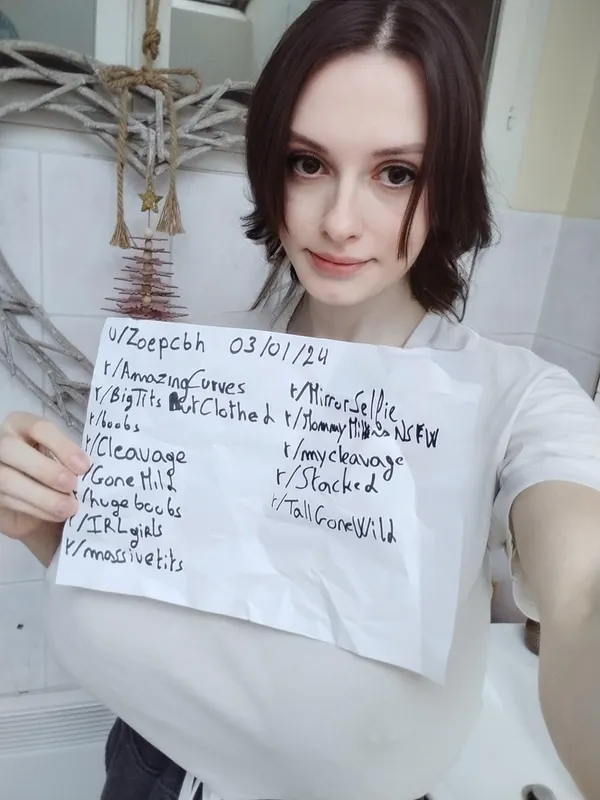 u/Zoepcbh 03/01/24
r/AmazingCurves
r/BigTits ButClothed
r/boobs
r/Cleavage
r/GoneMild
r/hugeboobs
r/IRLgirls
r/massivetits
r/MirrorSelfie
r/MommyMilkersNSFW
r/mycleavage
r/Stacked
r/TallGoneWild